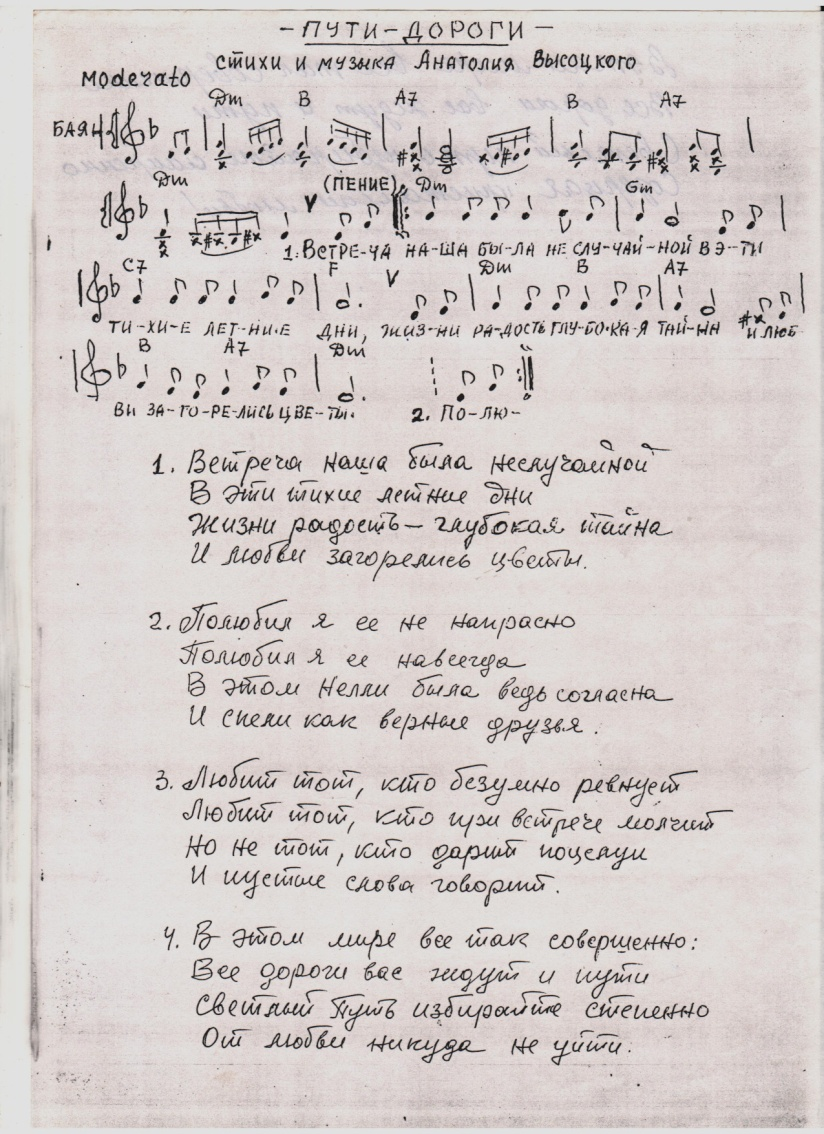 - ПУТИ - ДОРОГИ -
СТИХИ И МУЗЫКА АНАТОЛИЯ ВЫСОЦКОГО
Moderato
Dm B A7 B A7
БАЯН
Dm (ПЕНИЕ) Dm Gm
1. ВСТРЕ-ЧА НА-ША БЫ-ЛА НЕ СЛУ-ЧАЙ-НОЙ В Э-ТИ
C7 F Dm B A7
ТИ-ХИ-Е ЛЕТ-НИ-Е ДНИ, ЖИЗ-НИ РА-ДОСТЬ ГЛУ-БО-КА-Я ТАЙ-НА И ЛЮБ
B A7 Dm
ВИ ЗА-ГО-РЕ-ЛИСЬ ЦВЕ-ТЫ. 2. ПО-ЛЮ-
1. Встреча наша была неслучайной
В эти тихие летние дни
Жизни радость – глубокая тайна
И любви загорелись цветы.
2. Полюбил я ее не напрасно
Полюбил я ее навсегда
В этом Нелли была ведь согласна
И спели как верные друзья.
3. Любит тот, кто безумно ревнует
Любит тот, кто при встрече молчит
Но не тот, кто дарит поцелуи
И пустые слова говорит.
4. В этом мире все так совершенно:
Все дороги вас ждут и пути
Светлый Путь избирайте степенно
От любви никуда не уйти.